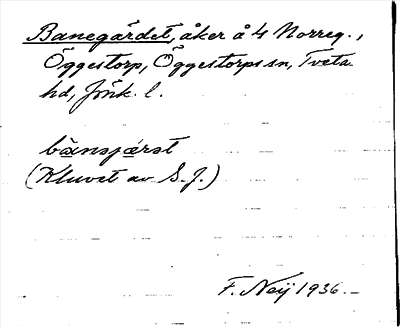 Banegärdet, åker å 4 Norreg.,
Öggestorp, Öggestorps sn, Tveta
hd, Jönk. l.
bänsjärst
(Kluvet av S.J.)
F. Neij 1936.–